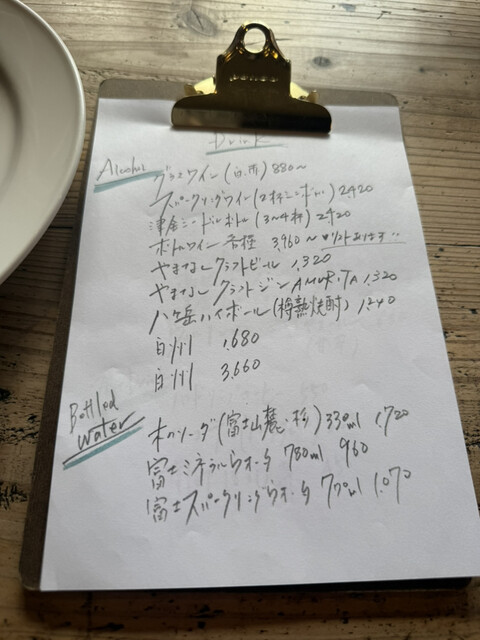 Drink
Alcohol
グラスワイン (白.赤) 880〜
スパークリングワイン (2杯 ボトル) 2420
津金シードルボトル (3〜4杯) 2420
ボトルワイン各種 3,960〜 ※リストあります
やまなしクラフトビール 1,320
やまなしクラフトジン AMRTA 1,320
八ヶ岳ハイボール (樽熟焼酎) 1,240
白州 1,680
白州 3,660
Bottled
Water
木のソーダ (富士山麓・杉) 330ml 1,720
富士ミネラルウォータ 780ml 960
富士スパークリングウォータ 770ml 1,070